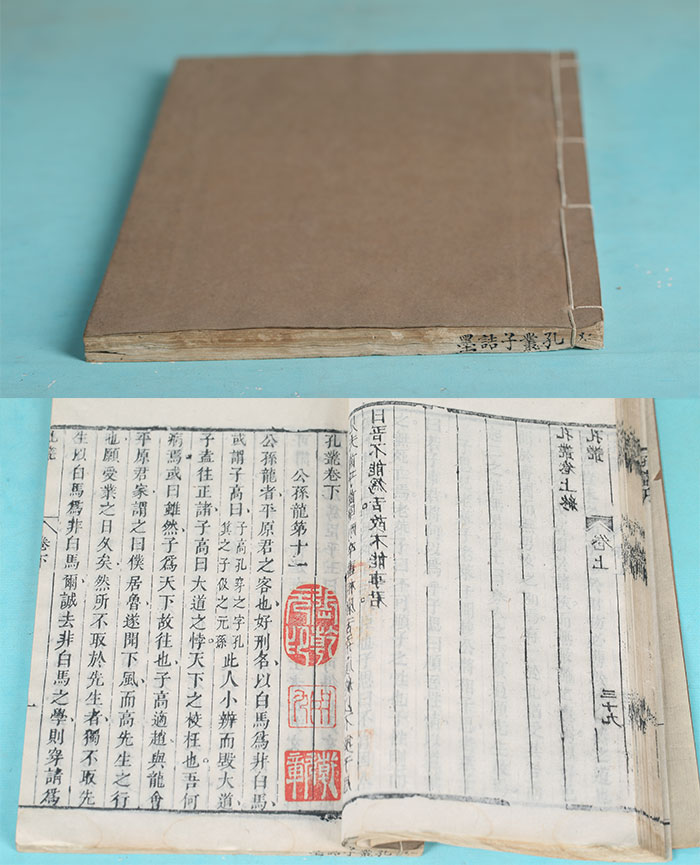 孔叢子詰墨
曰吾不能為舌故不能事君
孔叢卷上終
孔叢
卷上
三十九
孔叢卷下
公孫龍第十二
公孫龍者平原君之客也好刑名以白馬爲非白馬
或謂子高曰子高孔穿之字孔箕之子伋之元孫此人小辨而毀大道
子盍往正諸子高曰大道之悖天下之校枉也吾何
病焉或曰雖然子爲天下故往也子高適趙與龍會
平原君家謂之曰僕居魯遂聞下風而高先生之行
也願受業之日久矣然所不取於先生者獨不取先
生以白馬爲非白馬爾誠去非白馬之學則穿請爲
孔叢
卷下